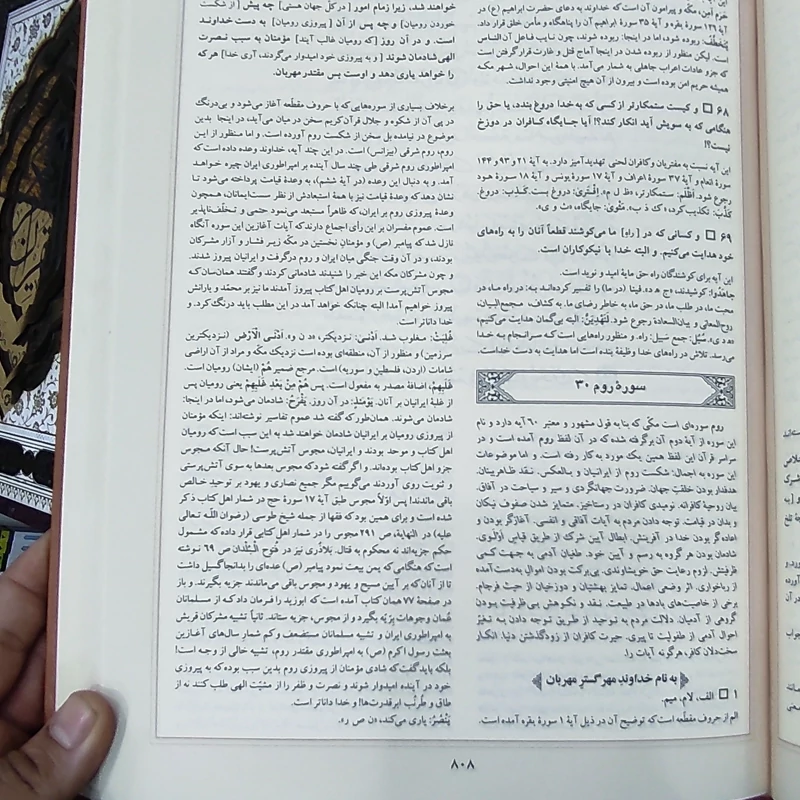 حرم امن، مکّه و پیرامون آن است که خداوند به دعای حضرت ابراهیم (ع) در
آیهٔ ۱۲۶ سورهٔ بقره و آیهٔ ۳۵ سورهٔ ابراهیم آن را پناهگاه و مأمن خلق قرار داد.
یُتَخَطَّفُ: ربوده شود، اما در اینجا: ربوده شوند، چون نایب فاعل آن الناس
است. لیکن منظور از ربوده شدن در اینجا آماج قتل و غارت قرار گرفتن است
که جزو عادات اعراب جاهلی به شمار می‌آمد. با همهٔ این احوال، شهر مکه
همیشه حریم امن بوده است و بیرون از آن هیچ امنیتی وجود نداشت.
۶۸ □ و کیست ستمکارتر از کسی که به خدا دروغ بندد، یا حق را
هنگامی که به سویش آید انکار کند؟! آیا جایگاه کافران در دوزخ
نیست؟!
این آیه نسبت به مفتریان و کافران لحنی تهدیدآمیز دارد. به آیهٔ ۲۱ و ۹۳ و ۱۴۴
سورهٔ انعام و آیهٔ ۳۷ سورهٔ اعراف و آیهٔ ۱۷ سورهٔ یونس و آیهٔ ۱۸ سورهٔ هود
رجوع شود. أظْلَمُ: ستمکارتر، «ظ ل م». إفْتَری: دروغ بست. کَذِب: دروغ.
کَذَّبَ: تکذیب کرد، «ک ذ ب». مَثْوی: جایگاه، «ث و ی».
۶۹ □ و کسانی که در [راه] ما می‌کوشند قطعاً آنان را به راه‌های
خود هدایت می‌کنیم. و البته خدا با نیکوکاران است.
این آیه برای کوشندگان راه حق مایهٔ امید و نوید است.
جاهَدُوا: کوشیدند، «ج ه د». فینا (در ما) را تفسیر کرده‌اند به: در راه ما، در
محبت ما، در طلب ما، در حق ما، به خاطر رضای ما. به کشاف، مجمع‌البیان،
روح‌المعانی و بیان‌السعادة رجوع شود. لَنَهْدِیَنَّ: البته بی‌گمان هدایت می‌کنیم،
«ه د ی». سُبُل: جمع سَبیل: راه. و منظور راه‌هایی است که سرانجام به خدا
می‌رسد. تلاش در راه‌های خدا وظیفهٔ بنده است اما هدایت به دست خداست.
سورهٔ روم ۳۰
روم سوره‌ای است مکّی که بنا به قول مشهور و معتبر ۶۰ آیه دارد و نام
این سوره از آیهٔ دوم آن برگرفته شده که در آن لفظ روم آمده است و در
سراسر قرآن این لفظ همین یک مورد به کار رفته است. و اما موضوعات
این سوره به اجمال: شکست روم از ایرانیان و بالعکس. نقد ظاهربینان.
هدفدار بودن خلقت جهان. ضرورت جهانگردی و سیر و سیاحت در آفاق.
بیان روحیهٔ کافرانه. نومیدی کافران در رستاخیز. متمایز شدن صفوف نیکان
و بدان در قیامت. توجه دادن مردم به آیات آفاقی و انفسی. آغازگر بودن و
اعاده گر بودن خدا در آفرینش. ابطال آیین شرک از طریق قیاس اَوْلَویّ.
شادمان بودن هر گروه به رسم و آیین خود. طغیان آدمی به جهت کمی
ظرفیتش. لزوم رعایت حق خویشاوندی. بی‌برکت بودن اموال به‌دست‌آمده
از رباخواری. اثر وضعی اعمال. تمایز بهشتیان و دوزخیان از حیث فرجام.
برخی از خاصیت‌های بادها در طبیعت. نقد و نکوهش بی‌ظرفیت بودن
گروهی از آدمیان. دلالت مردم به توحید از طریق توجه دادن به تغیّر
احوال آدمی از طفولیت تا پیری. حیرت کافران از زودگذشتن دنیا. انکار
سخت‌دلان کافر، هرگونه آیات را.
به نام خداوند مهرگستر مهربان
۱ □ الف، لام، میم.
الم از حروف مقطّعه است که توضیح آن در ذیل آیهٔ ۱ سورهٔ بقره آمده است.
خواهند شد، زیرا زمام امور [در کلّ جهان هستی] چه پیش [از شکست
خوردن رومیان] و چه پس از آن [پیروزی رومیان] به دست خداوند
است. و در آن روز [که رومیان غالب آیند] مؤمنان به سبب نصرت
الهی شادمان شوند [و به پیروزی خود امیدوار می‌گردند، آری خدا] هر که
را خواهد یاری دهد و اوست بس مقتدر مهربان.
برخلاف بسیاری از سوره‌هایی که با حروف مقطّعه آغاز می‌شود و بی‌درنگ
در پی آن از شکوه و جلال قرآن کریم سخن در میان می‌آید، در اینجا بدین
موضوع در نیامده بل سخن از شکست روم آورده است. و اما منظور از این
روم، روم شرقی (بیزانس) است. در این چند آیه، خداوند وعده داده است که
امپراطوری روم شرقی طی چند سال آینده بر امپراطوری ایران چیره خواهد
آمد. و به دنبال این وعده (در آیهٔ ششم)، به وعدهٔ قیامت پرداخته می‌شود تا
نشان دهد که وعدهٔ قیامت نیز با همهٔ استبعادش از نظر سست‌ایمانان، همچون
وعدهٔ پیروزی روم بر ایران، که ظاهراً مستبعد می‌نمود حتمی و تخلّف‌ناپذیر
است. عموم مفسران بر این رأی اجماع دارند که آیات آغازین این سوره آنگاه
نازل شد که پیامبر (ص) و مؤمنان نخستین در مکّه زیر فشار و آزار مشرکان
بودند، و در آن وقت جنگی میان ایران و روم درگرفت و ایرانیان پیروز شدند.
و چون مشرکان مکه این خبر را شنیدند شادمانی کردند و گفتند همان‌سان که
مجوس آتش‌پرست بر رومیان اهل کتاب پیروز آمدند ما نیز بر محمّد و یارانش
پیروز خواهیم آمد! البته چنانکه خواهد آمد در این مطلب باید درنگ کرد. و
خدا داناتر است.
غُلِبَتْ: مغلوب شد. أدْنی: نزدیکتر، «د ن و». أدْنَی الْأرْضِ (نزدیکترین
سرزمین) و منظور از آن، منطقه‌ای بوده است نزدیک مکّه و مراد از آن اراضی
شامات (اردن، فلسطین و سوریه) است. مرجع ضمیر هُمْ (ایشان) رومیان است.
غَلَبِهِمْ، اضافهٔ مصدر به مفعول است. پس هُمْ مِنْ بَعْدِ غَلَبِهِمْ یعنی رومیان پس
از غلبهٔ ایرانیان بر آنان. یَوْمَئِذٍ: در آن روز. یَفْرَحُ: شادمان می‌شود، اما در اینجا:
شادمان می‌شوند. همان‌طور که گفته شد عموم تفاسیر نوشته‌اند: اینکه مؤمنان
از پیروزی رومیان بر ایرانیان شادمان خواهند شد به این سبب است که رومیان
اهل کتاب و موحد بودند و ایرانیان، مجوس آتش‌پرست! حال آنکه مجوس
جزو اهل کتاب بوده‌اند. و اگر گفته شود که مجوس بعدها به سوی آتش‌پرستی
و ثنویت روی آوردند می‌گوییم مگر جمیع نصاری و یهود بر توحید خالص
باقی ماندند! پس اوّلاً مجوس طبق آیهٔ ۱۷ سورهٔ حج در شمار اهل کتاب ذکر
شده است و برای همین بود که فقها از جمله شیخ طوسی (رضوان اللّه تعالی
علیه) در النهایة، ص ۲۹۱ مجوس را در شمار اهل کتابی قرار داده که مشمول
حکم جزیه‌اند نه محکوم به قتال. بلاذُری نیز در فُتوح الْبُلْدان ص ۶۹ نوشته
است که هنگامی که یمن بیعت نمود پیامبر (ص) عدّه‌ای را بدانجا گسیل داشت
تا از آنان که بر آیین مسیح و یهود و مجوس باقی می‌ماندند جزیه بگیرند. و باز
در صفحهٔ ۷۷ همان کتاب آمده است که ابوزید را فرمان داد که از مسلمانان
عُمان وجوهات بِرّیّه بگیرد و از مجوس، جزیه ستاند. ثانیاً تشبیه مشرکان قریش
به امپراطوری ایران و تشبیه مسلمانان مستضعف و کم شمار سال‌های آغازین
بعثت رسول اکرم (ص) به امپراطوری مقتدر روم، تشبیه خالی از وجه است!
بلکه باید گفت که شادی مؤمنان از پیروزی روم بدین سبب بوده که به پیروزی
خود در آینده امیدوار شوند و نصرت و ظفر را از مشیّت الهی طلب کنند نه از
طاق و طُرنْب ابرقدرت‌ها! و خدا داناتر است.
یَنْصُرُ: یاری می‌کند، «ن ص ر».
۸۰۸